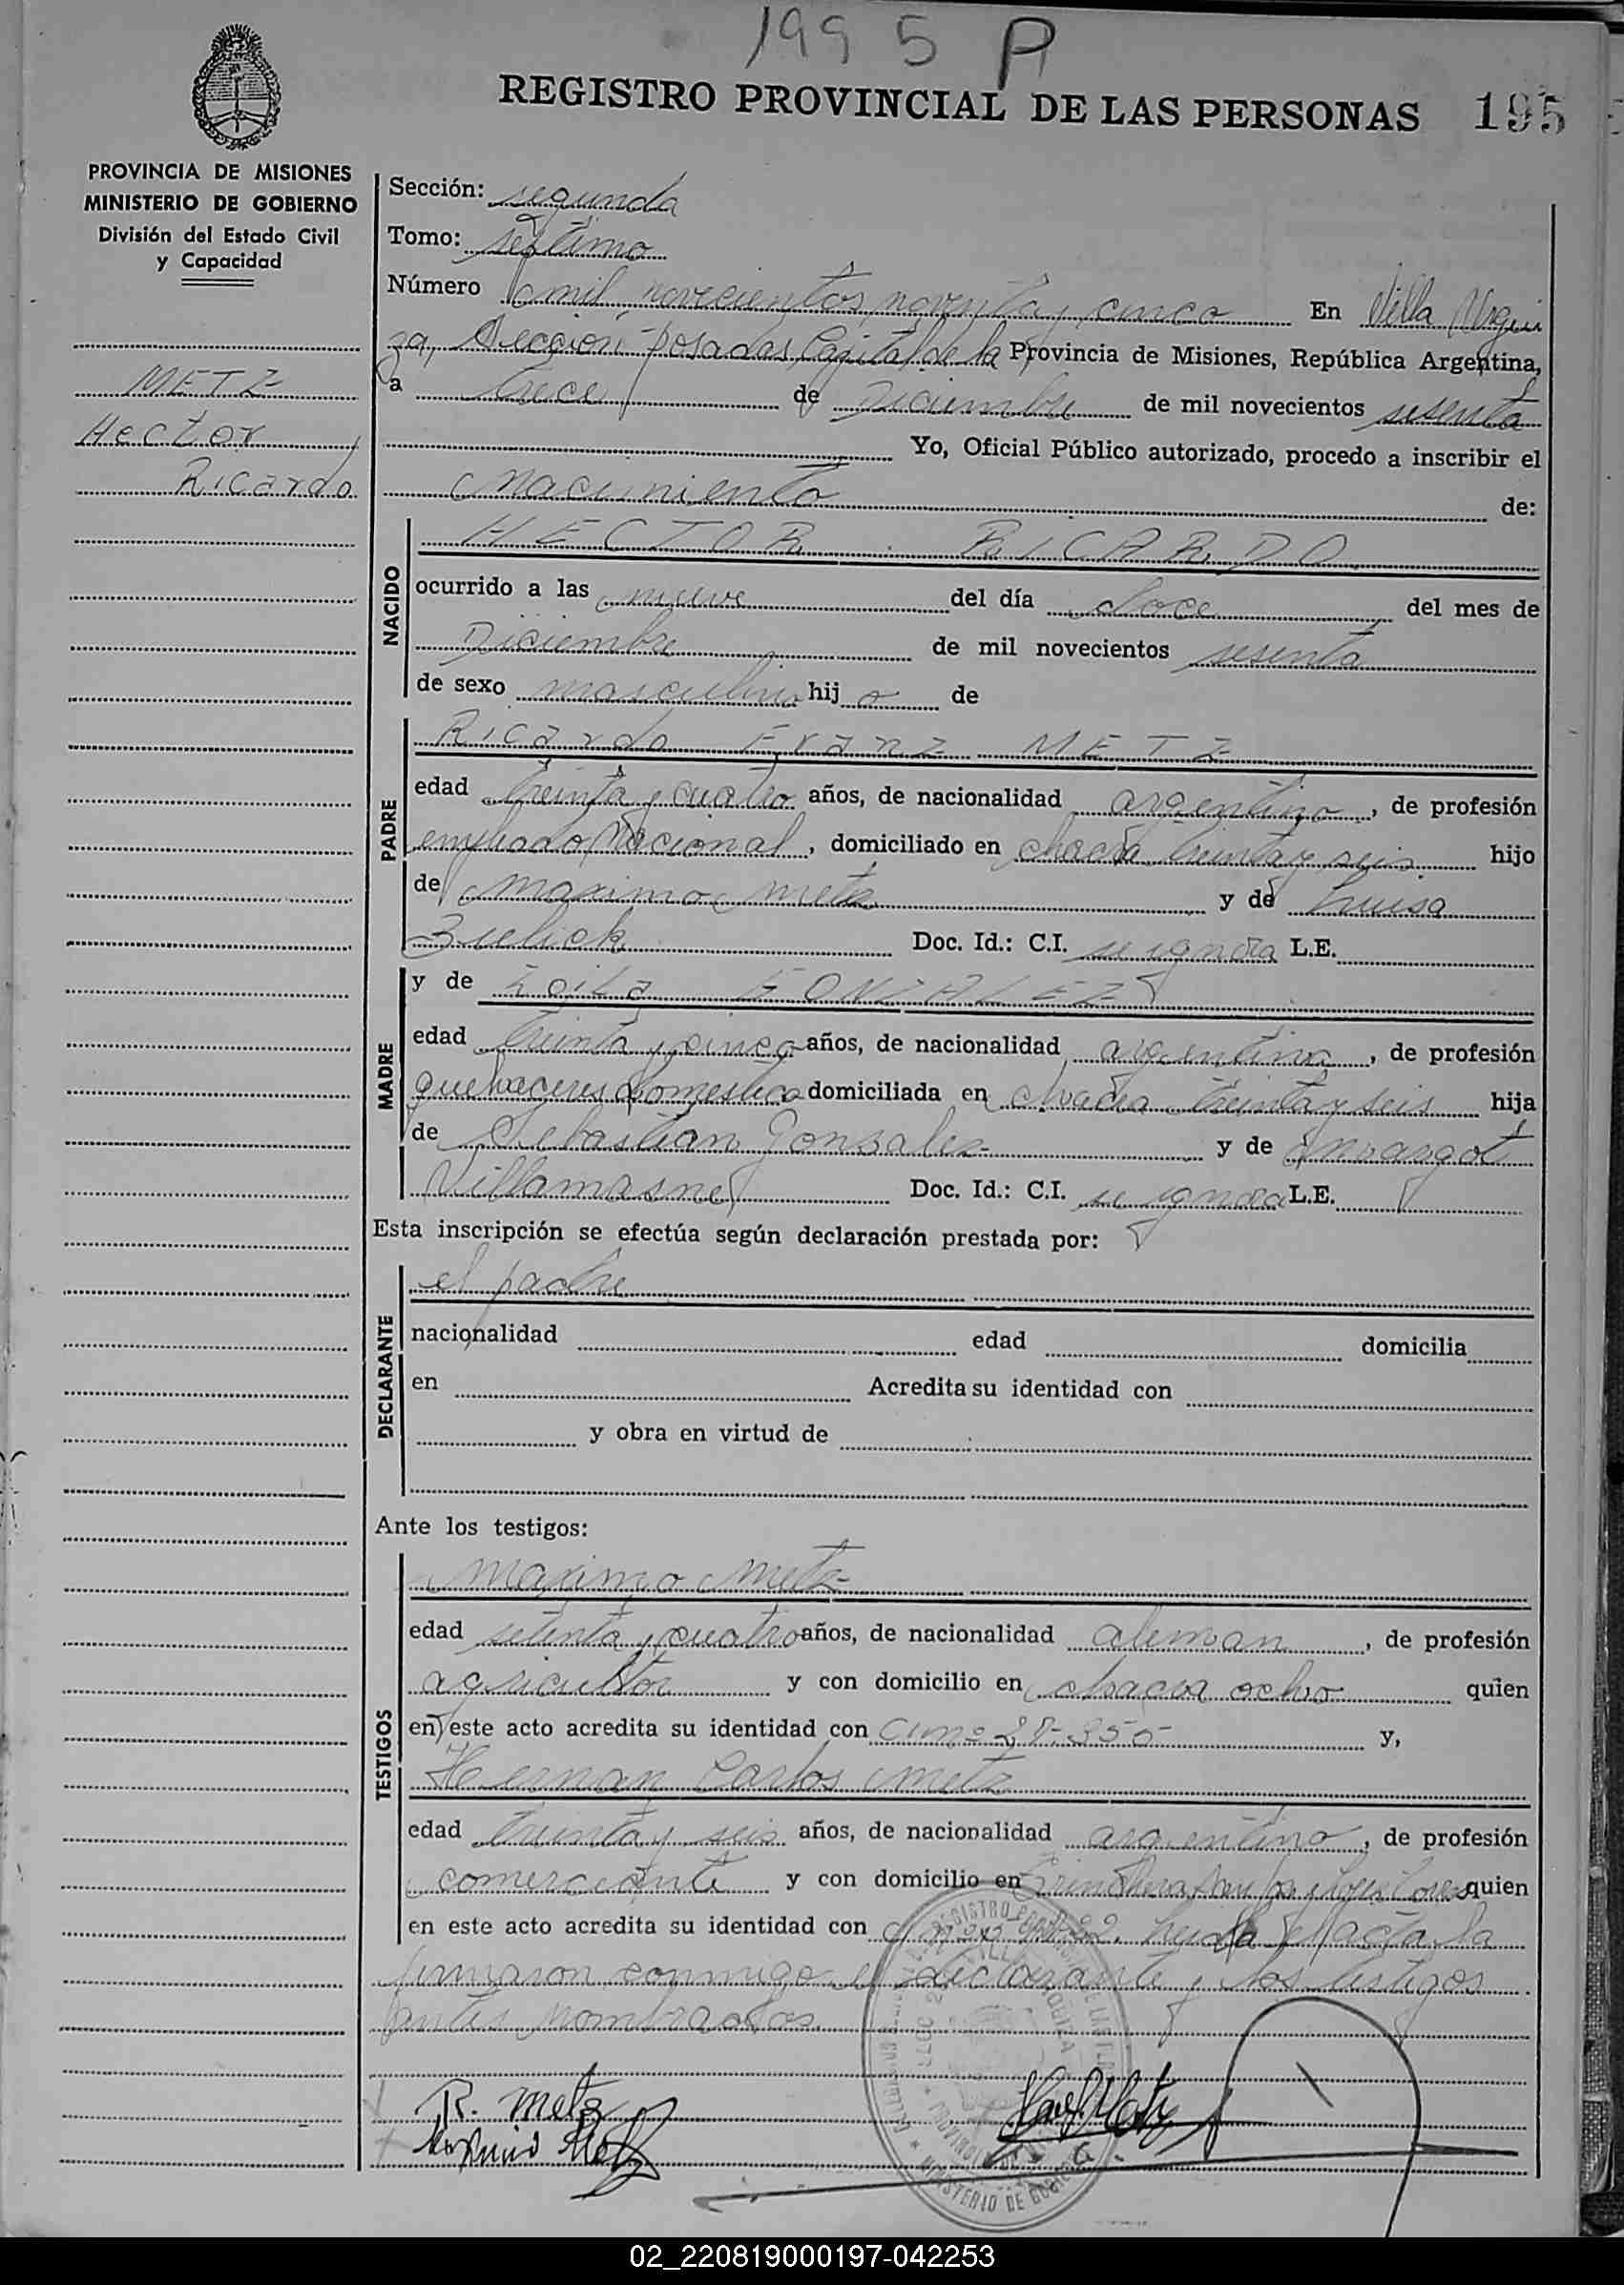 1995 P
REGISTRO PROVINCIAL DE LAS PERSONAS 195
PROVINCIA DE MISIONES
MINISTERIO DE GOBIERNO
División del Estado Civil
y Capacidad
METZ
Hector
Ricardo
Sección: segunda
Tomo: septimo
Número mil novecientos noventa y cinco En Villa Urqui
za, Sección Posadas, Capital de la Provincia de Misiones, República Argentina,
a trece de Diciembre de mil novecientos sesenta
Yo, Oficial Público autorizado, procedo a inscribir el
nacimiento de:
NACIDO
HECTOR RICARDO
ocurrido a las nueve del día doce del mes de
Diciembre de mil novecientos sesenta
de sexo masculino hijo de
PADRE
Ricardo Franz METZ
edad treinta y cuatro años, de nacionalidad argentino, de profesión
empleado Nacional, domiciliado en chacra treinta y seis hijo
de Maximo Metz y de Luisa
Doc. Id.: C.I. se ignora L.E.
MADRE
y de Zoila GONZALEZ
edad treinta y cinco años, de nacionalidad argentina, de profesión
quehaceres domestico domiciliada en chacra treinta y seis hija
de Sebastian Gonsalez y de Margot
Doc. Id.: C.I. se ignora L.E.
Esta inscripción se efectúa según declaración prestada por:
DECLARANTE
el padre
nacionalidad edad domicilia
en Acredita su identidad con
y obra en virtud de
Ante los testigos:
TESTIGOS
Maximo Metz
edad setenta y cuatro años, de nacionalidad aleman, de profesión
agricultor y con domicilio en chacra ocho quien
en este acto acredita su identidad con y,
Hernan Carlos Metz
edad treinta y seis años, de nacionalidad argentino, de profesión
comerciante y con domicilio en quien
en este acto acredita su identidad con Leida el acta la
firmaron conmigo el declarante y los testigos
antes nombrados.
R. Metz
Maximo Metz
MINISTERIO DE GOBIERNO
02_220819000197-042253